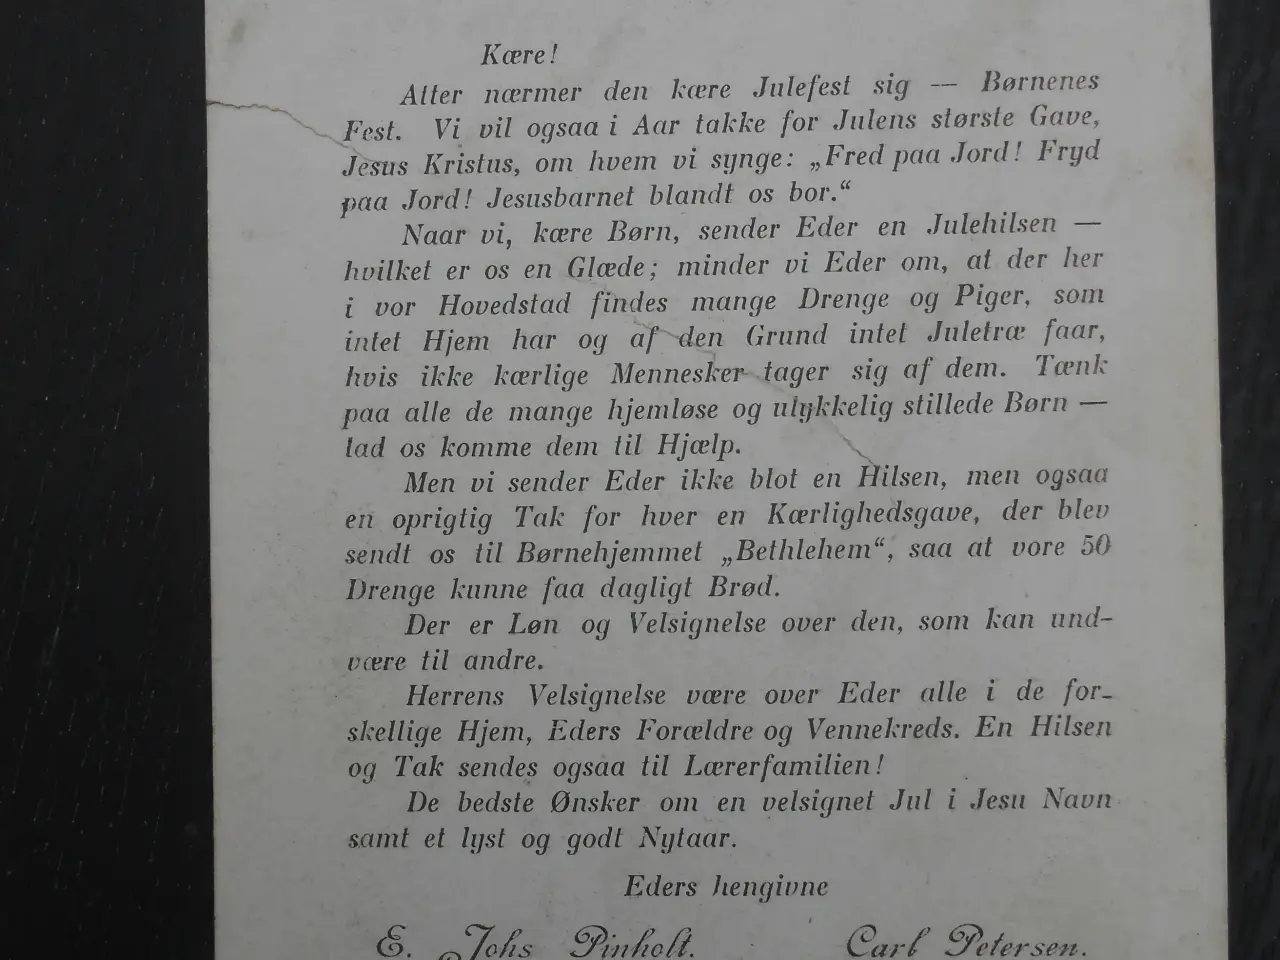 Kære!
Atter nærmer den kære Julefest sig — Børnenes
Fest. Vi vil ogsaa i Aar takke for Julens største Gave,
Jesus Kristus, om hvem vi synge: „Fred paa Jord! Fryd
paa Jord! Jesusbarnet blandt os bor.“
Naar vi, kære Børn, sender Eder en Julehilsen —
hvilket er os en Glæde; minder vi Eder om, at der her
i vor Hovedstad findes mange Drenge og Piger, som
intet Hjem har og af den Grund intet Juletræ faar,
hvis ikke kærlige Mennesker tager sig af dem. Tænk
paa alle de mange hjemløse og ulykkelig stillede Børn —
lad os komme dem til Hjælp.
Men vi sender Eder ikke blot en Hilsen, men ogsaa
en oprigtig Tak for hver en Kærlighedsgave, der blev
sendt os til Børnehjemmet „Bethlehem“, saa at vore 50
Drenge kunne faa dagligt Brød.
Der er Løn og Velsignelse over den, som kan und-
være til andre.
Herrens Velsignelse være over Eder alle i de for-
skellige Hjem, Eders Forældre og Vennekreds. En Hilsen
og Tak sendes ogsaa til Lærerfamilien!
De bedste Ønsker om en velsignet Jul i Jesu Navn
samt et lyst og godt Nytaar.
Eders hengivne
E. Johs Pinholt. Carl Petersen.